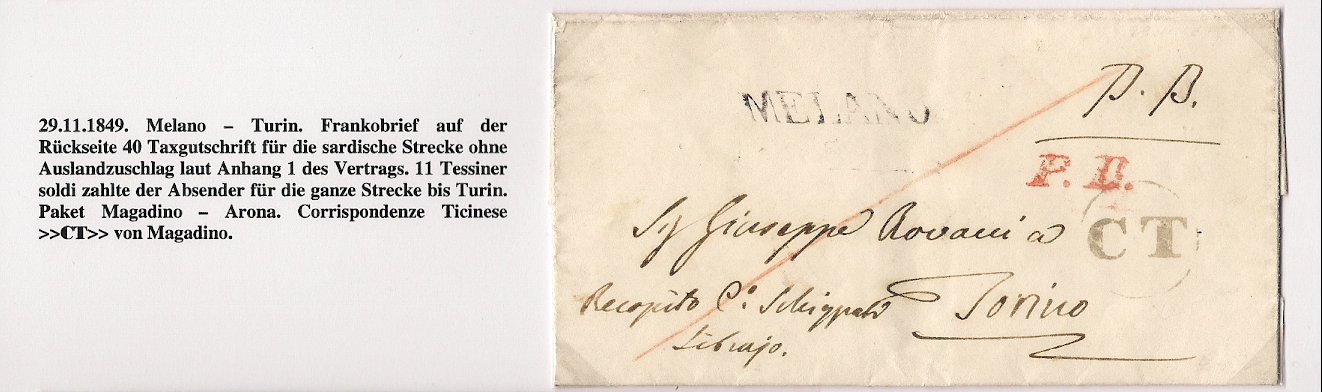 29.11.1849. Melano – Turin. Frankobrief auf der
Rückseite 40 Taxgutschrift für die sardische Strecke ohne
Auslandzuschlag laut Anhang 1 des Vertrags. 11 Tessiner
soldi zahlte der Absender für die ganze Strecke bis Turin.
Paket Magadino – Arona. Corrispondenze Ticinese
>>CT>> von Magadino.
MELANO
P. P.
P. D.
CT
Giuseppe Rovani a
Recapito
Torino
Librajo.